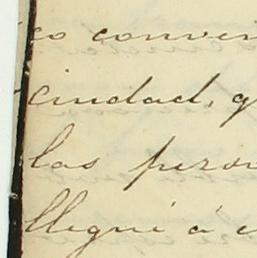 co conven
ciudad, q
las person
llegué á c